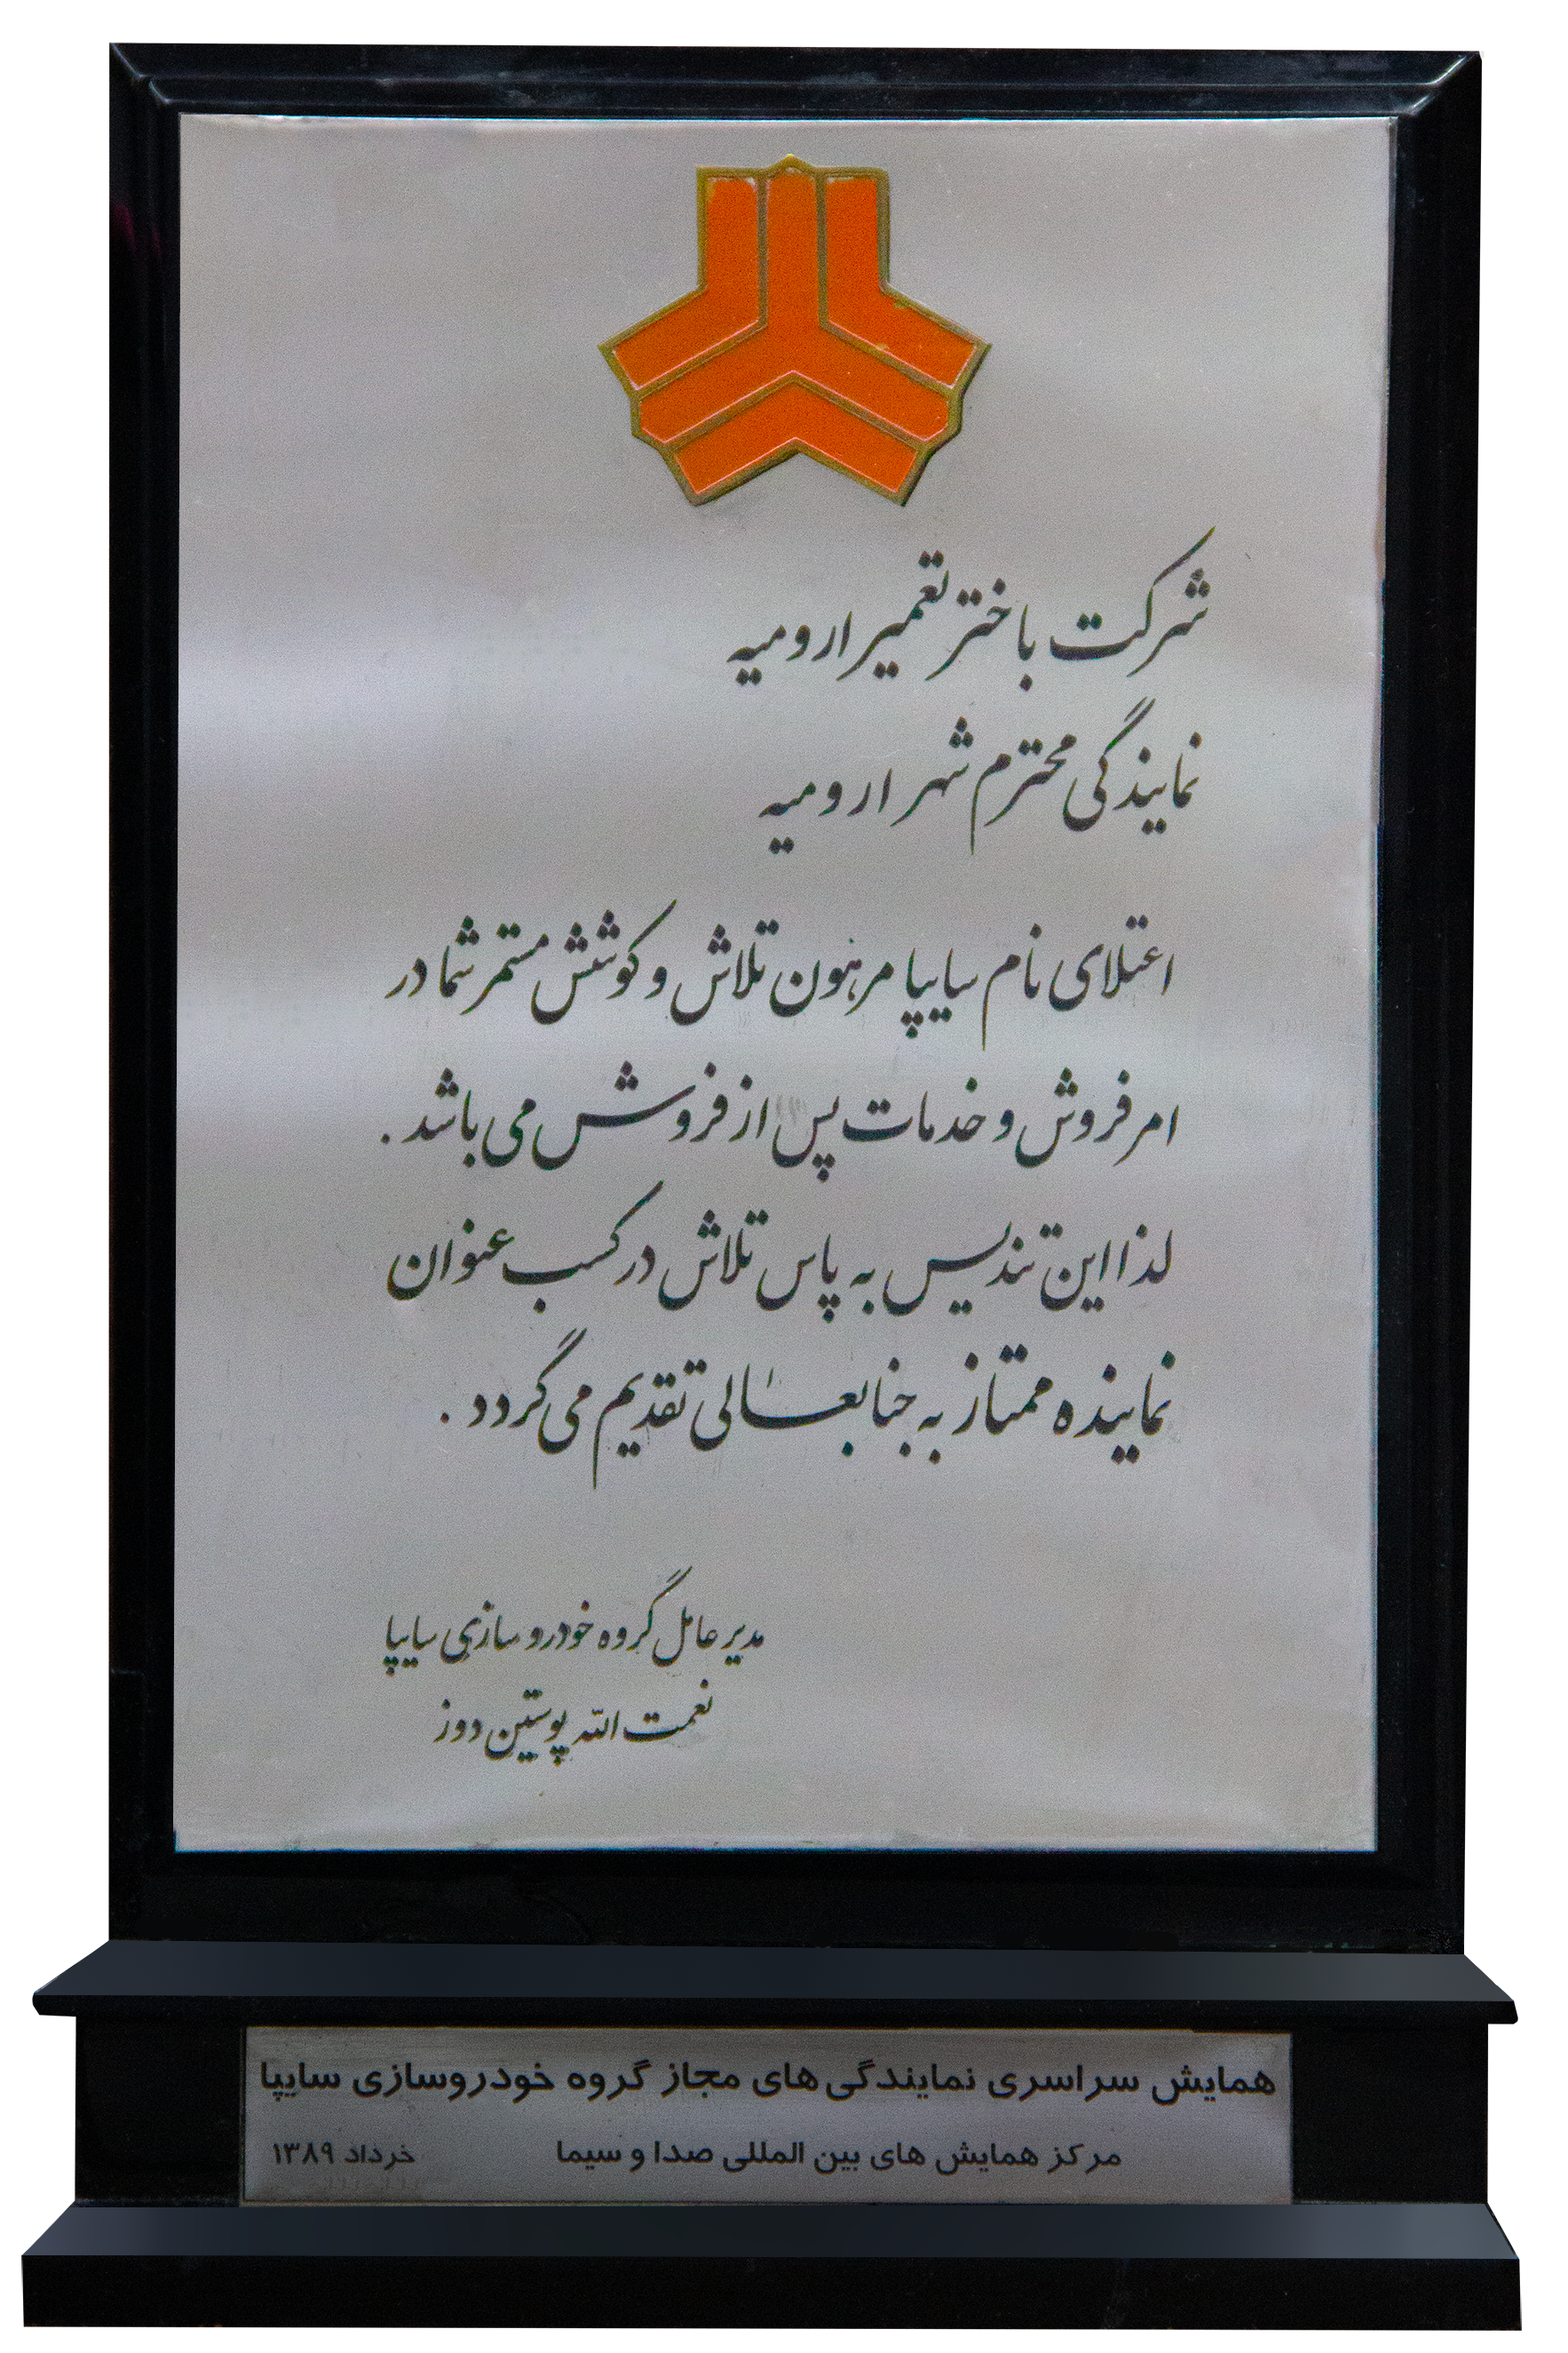 شرکت باختر تعمیر ارومیه
نمایندگی محترم شهر ارومیه
اعتلای نام سایپا مرهون تلاش و کوشش مستمر شما در
امر فروش و خدمات پس از فروش می باشد .
لذا این تندیس به پاس تلاش در کسب عنوان
نماینده ممتاز به جنابعالی تقدیم می گردد .
مدیر عامل گروه خودروسازی سایپا
نعمت الله پوستین دوز
همایش سراسری نمایندگی های مجاز گروه خودروسازی سایپا
مرکز همایش های بین المللی صدا و سیما خرداد ۱۳۸۹